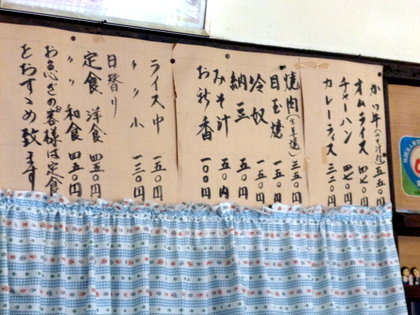 かつ丼(みそ汁付)五五〇円
オムライス 四七〇円
チャーハン 四二〇円
カレーライス 三二〇円
焼肉(生姜焼) 三五〇円
目玉焼 一五〇円
冷奴 一五〇円
納豆 一五〇円
みそ汁 五〇円
お新香 一〇〇円
ライス中 一五〇円
〃 小 一三〇円
日替り
定食 洋食 四五〇円
〃 和食 四五〇円
お急ぎのお客様は定食
をおすゝめ致します